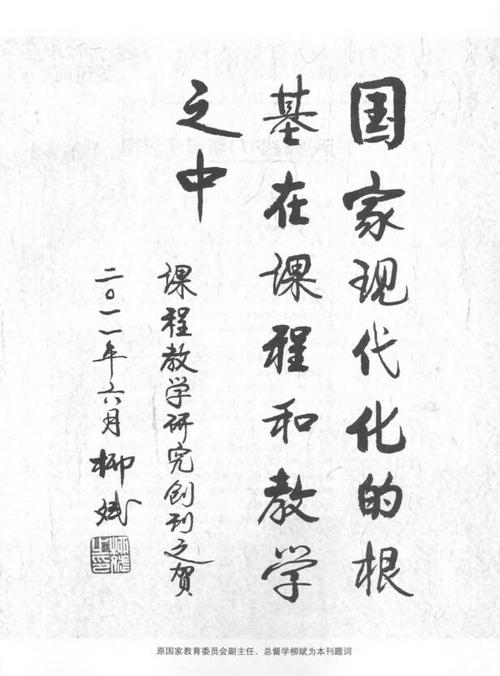 国家现代化的根
基在课程和教学
之中
课程教学研究创刊之贺
二〇一一年六月 柳斌
原国家教育委员会副主任、总督学柳斌为本刊题词